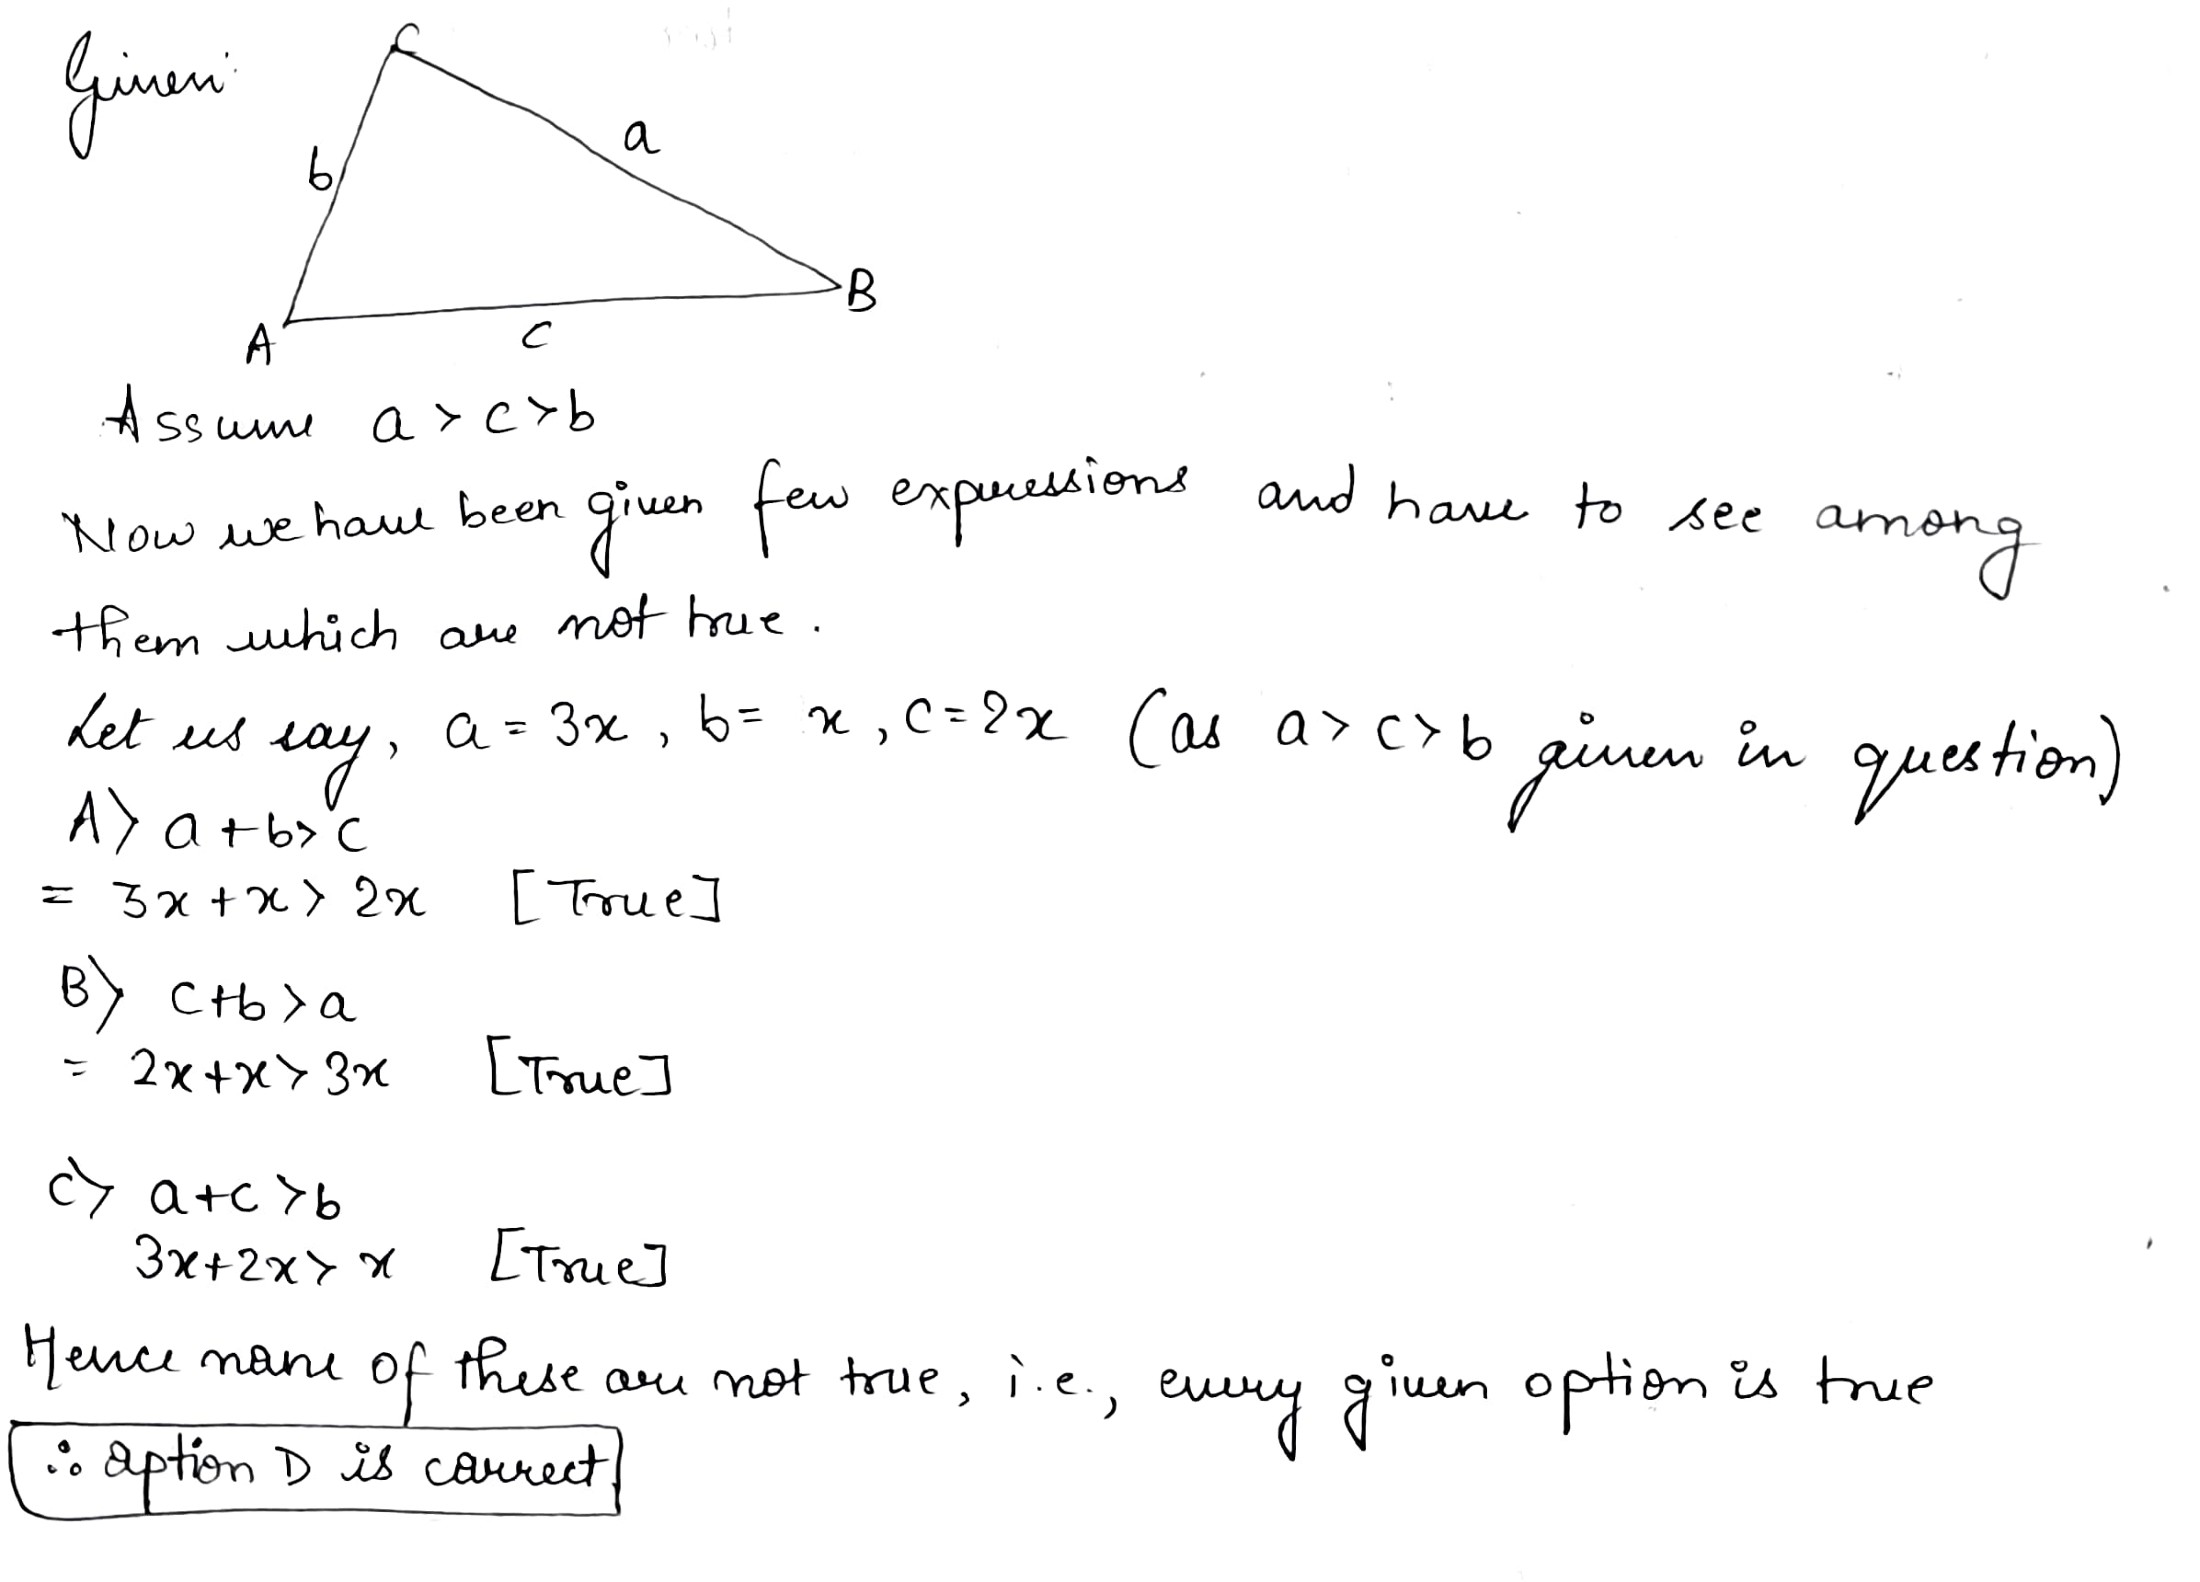 Given:
C
b
a
A
c
B
Assume a > c > b
Now we have been given few expressions and have to see among
them which are not true.
Let us say, a = 3x, b = x, c = 2x (as a > c > b given in question)
A) a + b > c
= 3x + x > 2x [True]
B) c + b > a
= 2x + x > 3x [True]
C) a + c > b
3x + 2x > x [True]
Hence none of these are not true, i.e., every given option is true
∴ option D is correct